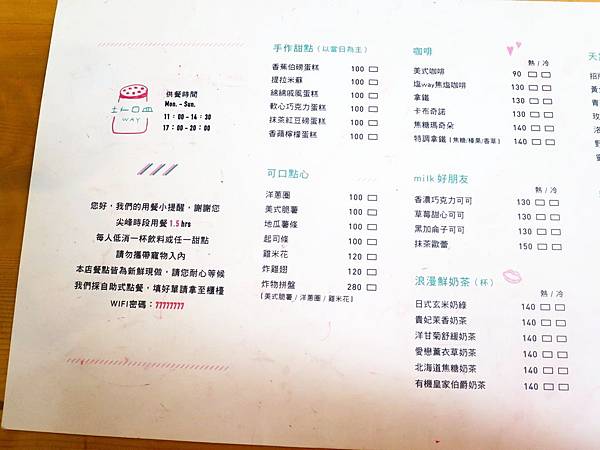 供餐時間
Mon. - Sun.
11：00-14：30
17：00-20：00
WAY
您好，我們的用餐小提醒，謝謝您
尖峰時段用餐 1.5 hrs
每人低消一杯飲料或任一甜點
請勿攜帶寵物入內
本店餐點皆為新鮮現做，請您耐心等候
我們採自助式點餐，填好單請拿至櫃檯
WIFI密碼：77777777
手作甜點（以當日為主）
香蕉伯磅蛋糕 100
提拉米蘇 100
綿綿戚風蛋糕 100
軟心巧克力蛋糕 100
抹茶紅豆磅蛋糕 100
香蘋檸檬蛋糕 100
可口點心
洋蔥圈 100
美式脆薯 100
地瓜薯條 100
起司條 100
雞米花 120
炸雞翅 120
炸物拼盤 280
（美式脆薯 / 洋蔥圈 / 雞米花）
咖啡
熱 / 冷
美式咖啡 90
塩way焦塩咖啡 130
拿鐵 130
卡布奇諾 130
焦糖瑪奇朵 140
特調拿鐵（焦糖/榛果/香草） 140
milk 好朋友
熱 / 冷
香濃巧克力可可 130
草莓甜心可可 130
黑加侖子可可 130
抹茶歐蕾 150
浪漫鮮奶茶（杯）
熱 / 冷
日式玄米奶綠 140
貴妃茉香奶茶 140
洋甘菊舒緩奶茶 140
愛戀薰衣草奶茶 140
北海道焦糖奶茶 140
有機皇家伯爵奶茶 140